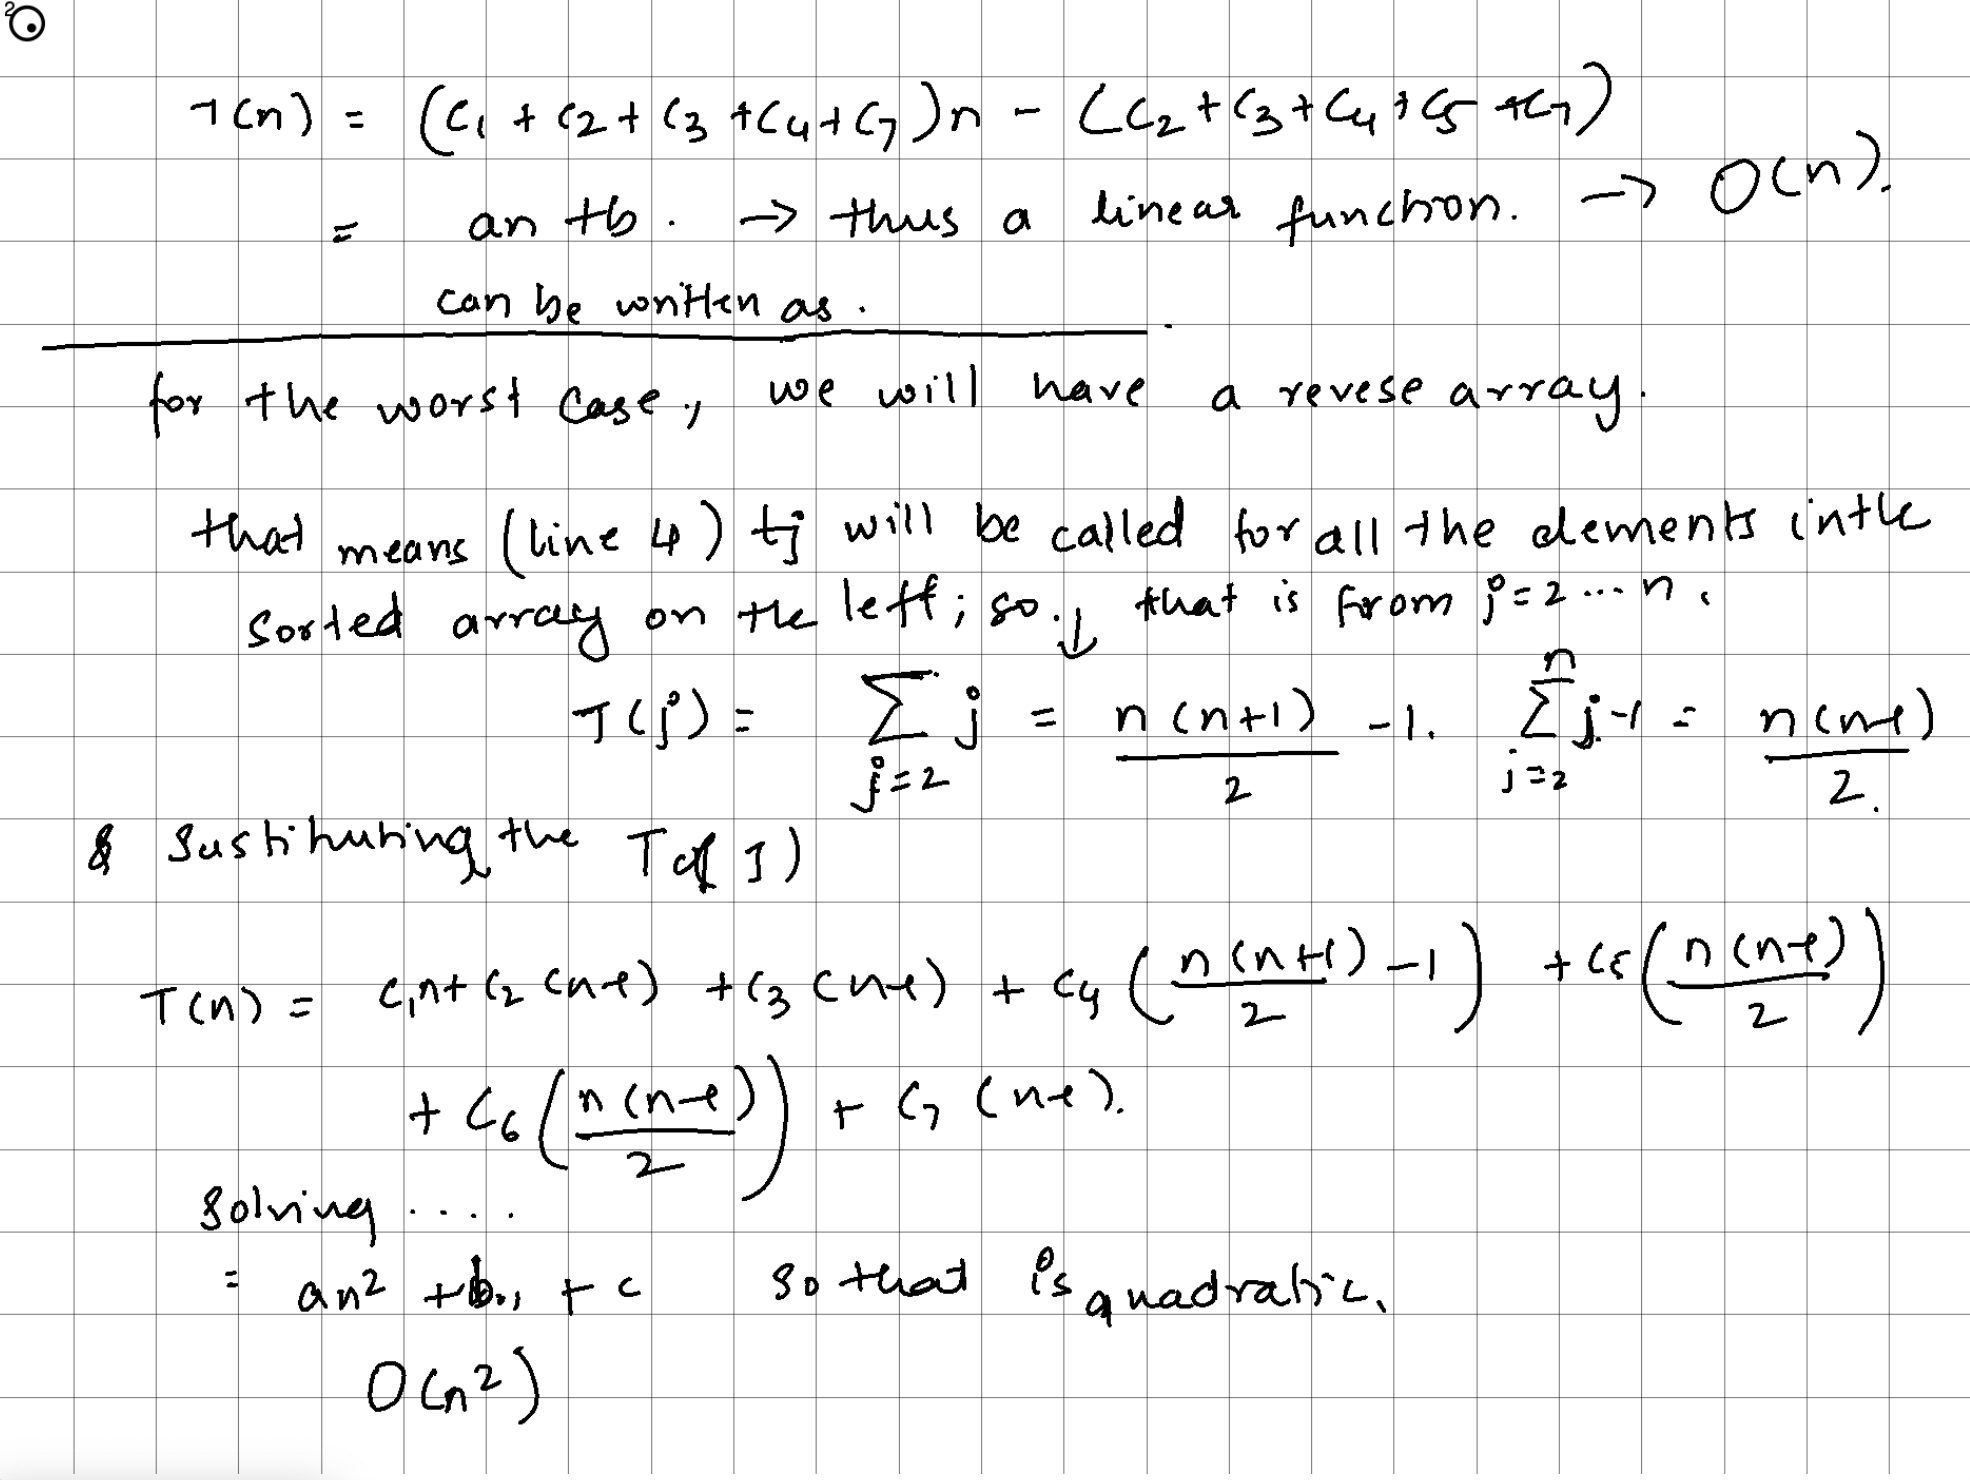 T(n) = (C1 + C2 + C3 + C4 + C7)n - (C2 + C3 + C4 + C5 + C7)
= an + b. → thus a linear function. → O(n).
can be written as.
for the worst case, we will have a revese array.
that means (line 4) tj will be called for all the elements in the
sorted array on the left; so.↓ that is from j=2...n.
T(j) = ∑_{j=2} j = n(n+1)/2 - 1. ∑_{j=2}^{n} j-1 = n(n-1)/2.
& Sustituting the T(J)
T(n) = C1n + C2(n-1) + C3(n-1) + C4(n(n+1)/2 - 1) + C5(n(n-1)/2)
+ C6(n(n-1)/2) + C7(n-1).
Solving ....
= an² + bn + c so that is quadratic.
O(n²)